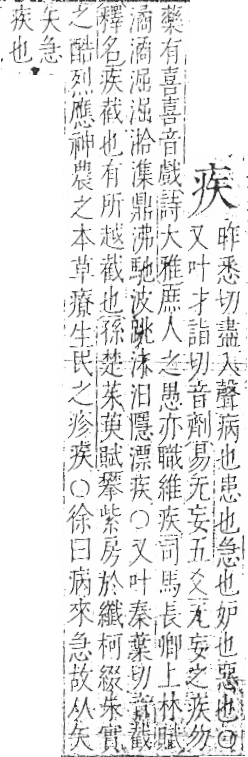 疾
昨悉切盡入聲病也患也急也妒也惡也○
又叶才詣切音劑易无妄五爻无妄之疾勿
藥有喜喜音戲詩大雅庶人之愚亦職維疾司馬長卿上林賦
潏潏淈淈湁潗鼎沸馳波跳沫汩㶒漂疾○又叶秦葉切音截
釋名疾截也有所越截也孫楚茱萸賦攀紫房於纖柯綴朱實
之酷烈應神農之本草療生民之疹疾○徐曰病來急故从矢
矢急
疾也